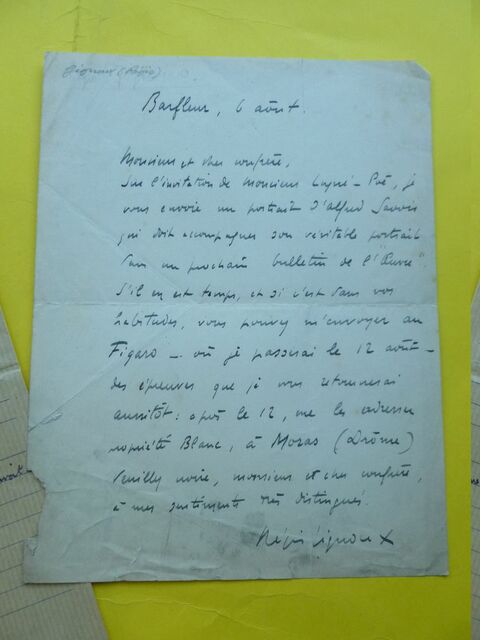 Gignoux (Régis)
Barfleur, 6 août.
Monsieur et cher confrère,
Sur l'invitation de Monsieur Lugné-Poë, je
vous envoie un portrait d'Alfred Savoir
qui doit accompagner son véritable portrait
dans un prochain bulletin de l'"Œuvre".
S'il en est temps, et si c'est dans vos
habitudes, vous pouvez m'envoyer au
Figaro – où je passerai le 12 août –
des épreuves que je vous retournerai
aussitôt : après le 12, me les adresser
propriété Blanc, à Moras (Drôme)
Veuillez croire, monsieur et cher confrère,
à mes sentiments très distingués.
Régis Gignoux